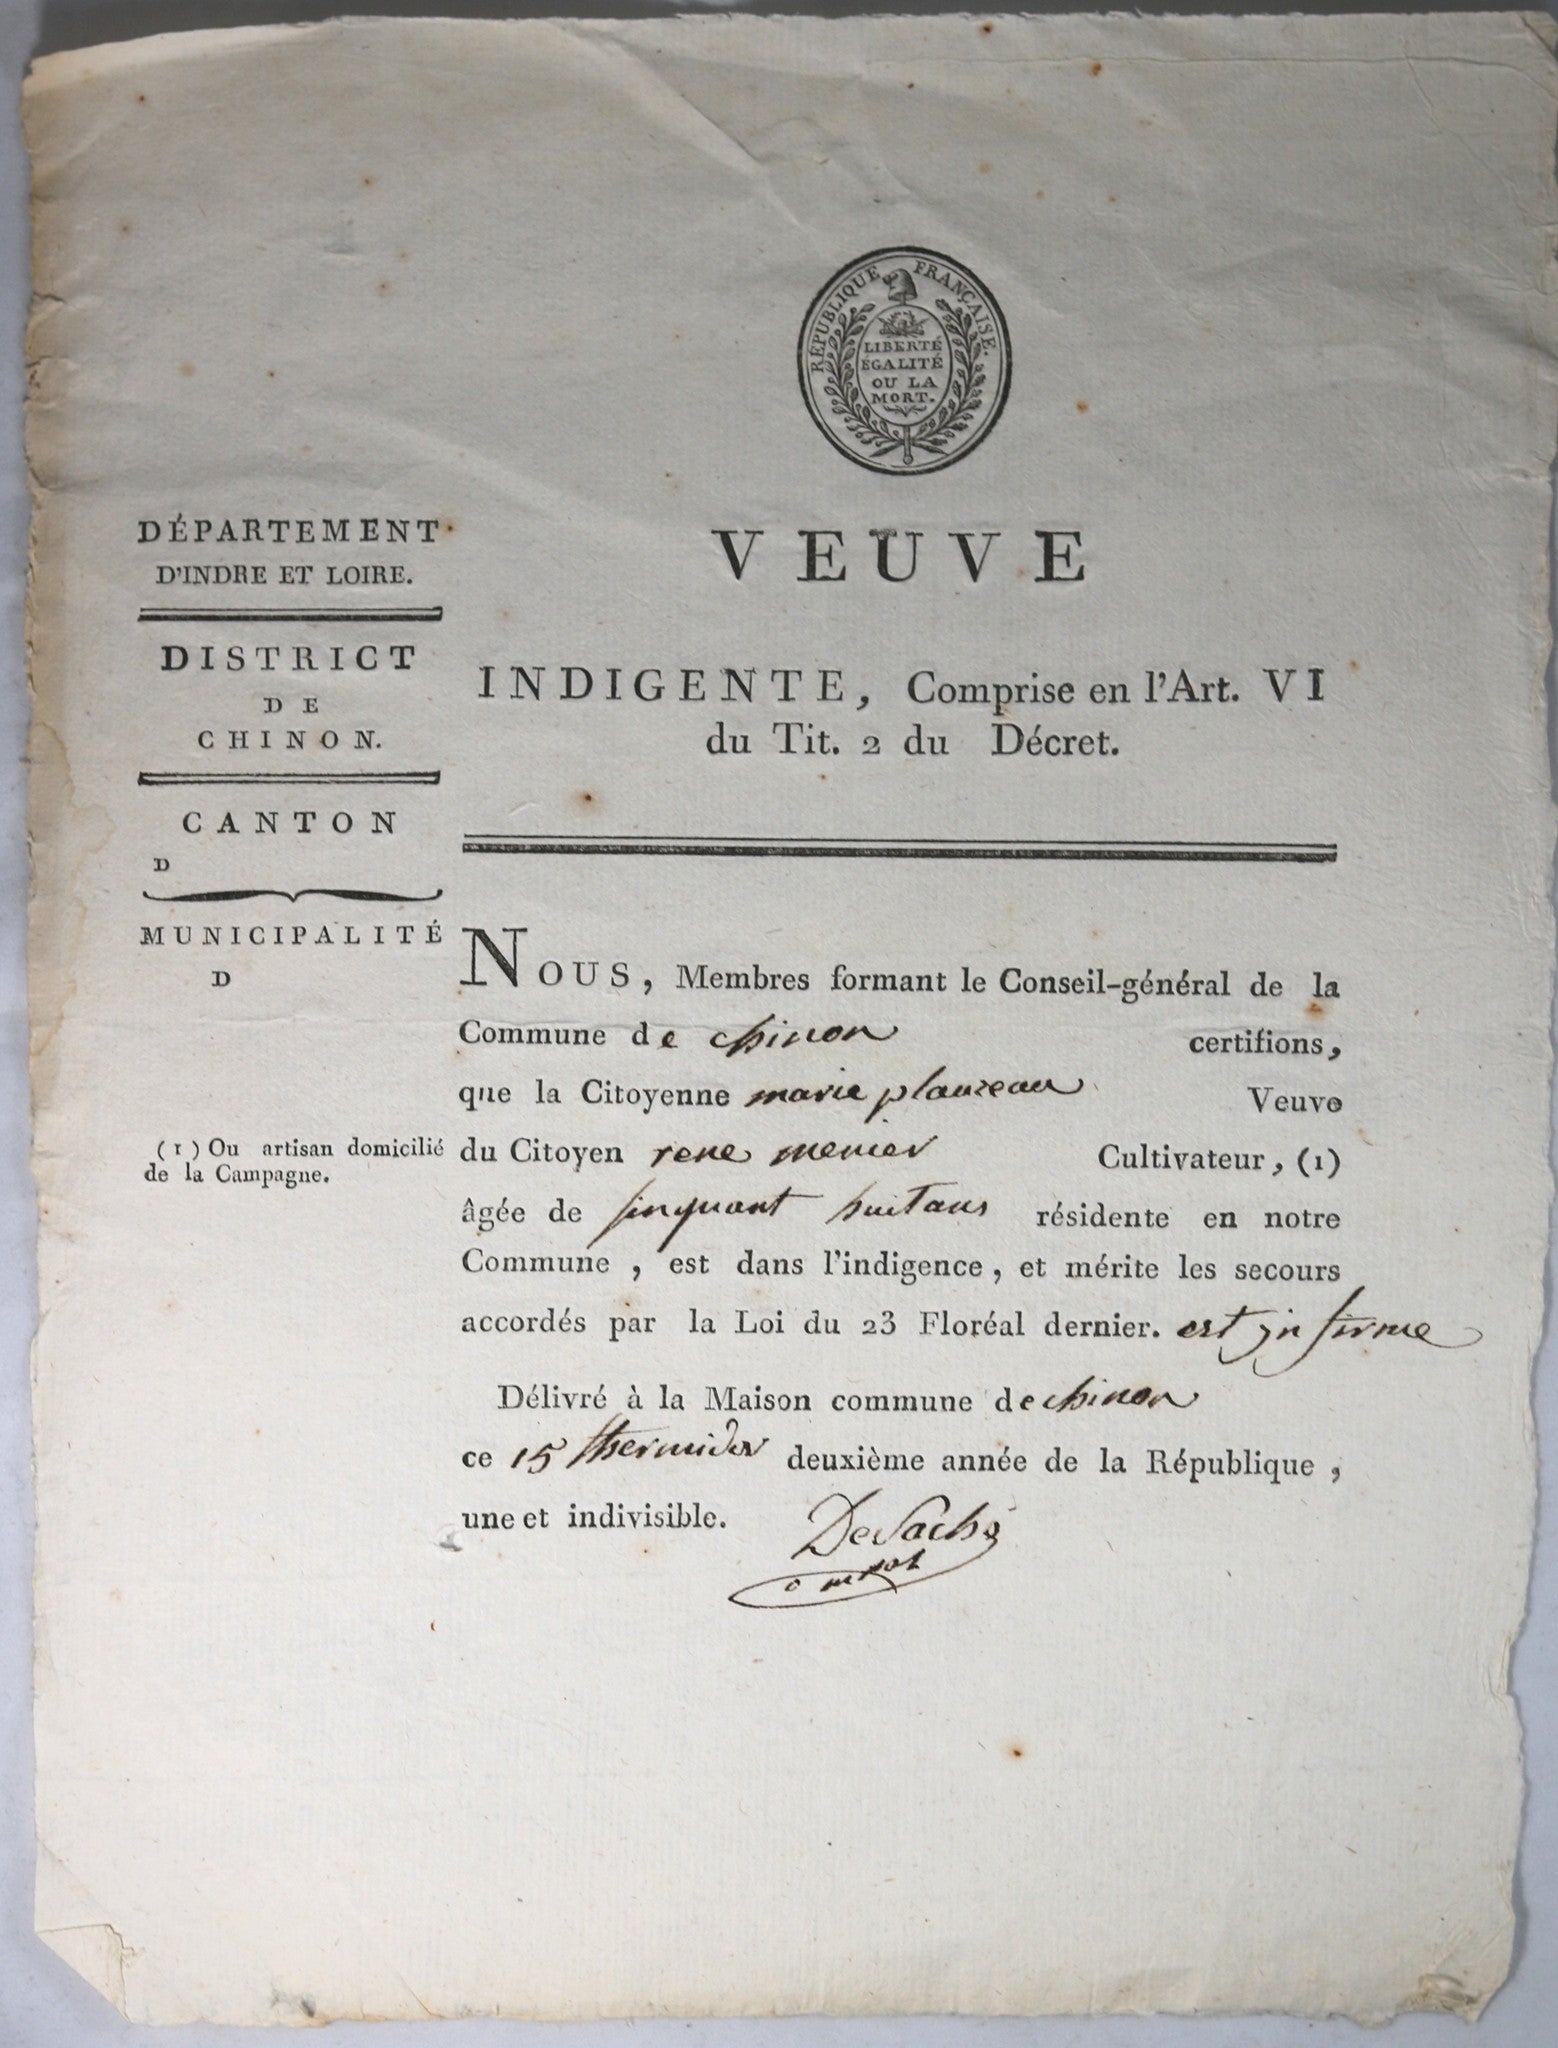 RÉPUBLIQUE FRANÇAISE.
LIBERTÉ
ÉGALITÉ
OU LA
MORT.
DÉPARTEMENT
D'INDRE ET LOIRE.
DISTRICT
DE
CHINON.
CANTON
D
MUNICIPALITÉ
D
VEUVE
INDIGENTE, Comprise en l'Art. VI
du Tit. 2 du Décret.
NOUS, Membres formant le Conseil-général de la
Commune de chinon certifions,
que la Citoyenne marie plauzeau Veuve
du Citoyen rene menier Cultivateur, (1)
(1) Ou artisan domicilié
de la Campagne.
âgée de sinquant huit ans résidente en notre
Commune, est dans l'indigence, et mérite les secours
accordés par la Loi du 23 Floréal dernier. est jnfirme
Délivré à la Maison commune de chinon
ce 15 thermidor deuxième année de la République,
une et indivisible.
DeSaché